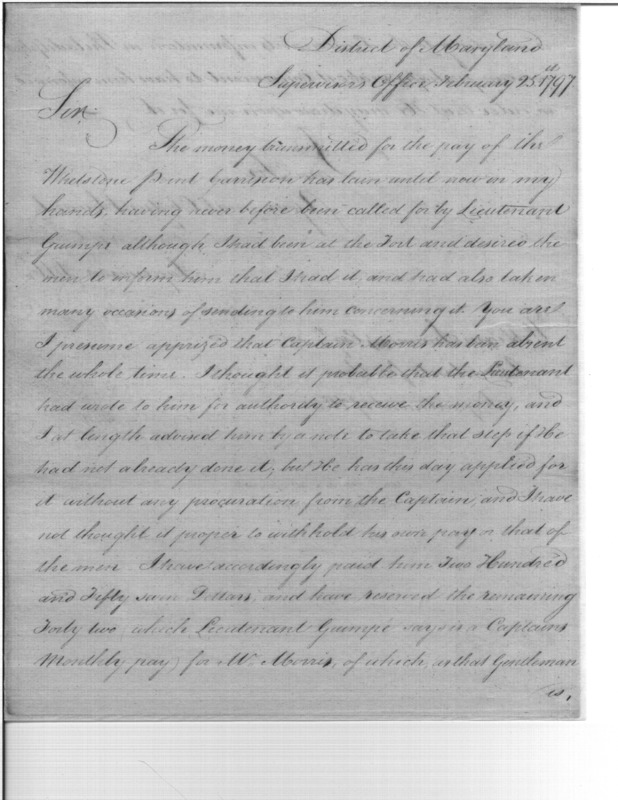 District of Maryland
Supervisors Office February 25.st 1797.
Sir,
The money transmitted for the pay of the
Whetstone Point Garrison has lain until now in my
hands, having never before been called for by Lieutenant
Gumpe although I had been at the Fort and desired the
men to inform him that I had it, and had also taken
many occasions of sending to him concerning it. You are
I presume apprized that Captain Morris has been absent
the whole time. I thought it probable that the Lieutenant
had wrote to him for authority to receive the money, and
I at length advised him by a note to take that step if He
had not already done it; but He has this day applied for
it without any procuration from the Captain, and I have
not thought it proper to withhold his own pay or that of
the men. I have accordingly paid him Two Hundred
and Fifty Dollars, and have reserved the remaining
Forty two, which Lieutenant Gumpe says is a Captains
Monthly pay, for Mr. Morris, of which, as that Gentleman
is,